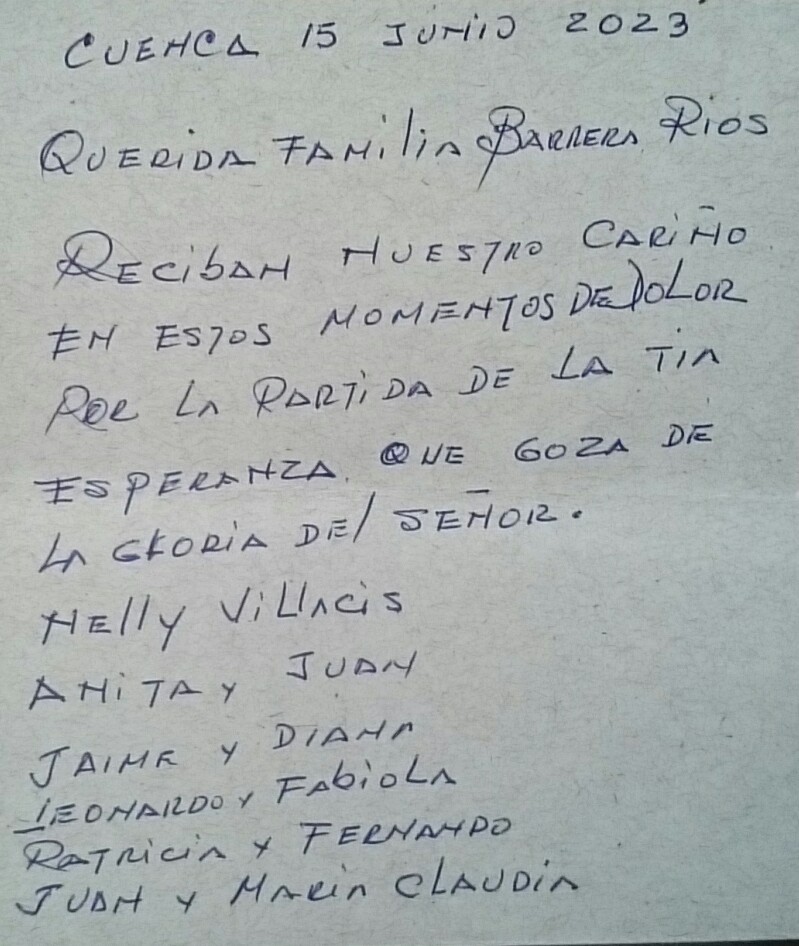 CUENCA 15 JUNIO 2023
QUERIDA FAMiliA BARRERA RiOS
RECibAN NUESTRO CARIÑO
EN ESTOS MOMENTOS DE DOLOR
POR LA PARTiDA DE LA TiA
ESPERANZA. QUE GOZA DE
LA GLORiA DEl SEÑOR.
NEllY ViLLACiS
ANiTA Y JUAN
JAIME Y DIANA
LEONARDO Y FAbiOLA
PATRiCiA Y FERNANDO
JUAN Y MARiA CLAUDiA